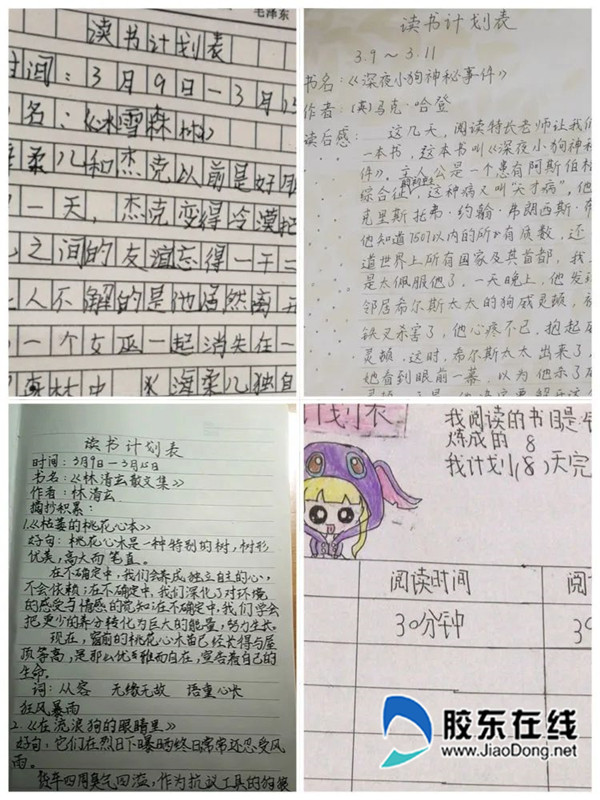 毛泽东
读书计划表
时间:3月9日—3月
名:《冰雪森林》
柔儿和杰克以前是好
一天,杰克变得冷漠
之间的友谊忘得一干二
人不解的是他居然离开
一个女巫一起消失在一
森林中
海柔儿独自
读书计划表
3.9~3.11
书名:《深夜小狗神秘事件》
作者:(英)马克·哈登
读后感: 这几天,阅读特长老师让我们
一本书,这本书叫《深夜小狗神秘
件》,主人公是一个患有阿斯伯
综合征,这种病又叫"天才病",他
克里斯托弗·约翰·弗朗西斯·
他知道7507以内的所有质数,还
道世界上所有国家及其首都,我
是太佩服他了,一天晚上,他发现
邻居希尔斯太太的狗威灵顿,被
铁叉杀害了,他心疼不已,抱起威
灵顿,这时,希尔斯太太出来了,
她看到眼前一幕,以为他杀了威
读书计划表
时间:3月9日—3月15日
书名:《林清玄散文集》
作者:林清玄
摘抄积累:
1.《枯萎的桃花心木》
好句:桃花心木是一种特别的树,树形
优美,高大而笔直。
在不确定中,我们会养成独立自主的心,
不会依赖;在不确定中,我们深化了对环境
的感受与情感的觉知;在不确定中,我们学会
把更少的养分转化为巨大的能量,努力生长。
现在,窗前的桃花心木苗已经长得与屋
顶等高,是那么优雅而自在,宣告着自己的
生命。
词:从容 无缘无故 语重心长
狂风暴雨
2.《在流浪狗的眼睛里》
好句:它们在烈日下曝晒终日常常还忍受风
雨。
货车四周臭气四溢,作为抗议工具的狗狼
计划表
我阅读的书目是:
炼成的 8
我计划(8)天完
阅读时间
阅
30分钟
30
胶东在线
www.JiaoDong.net